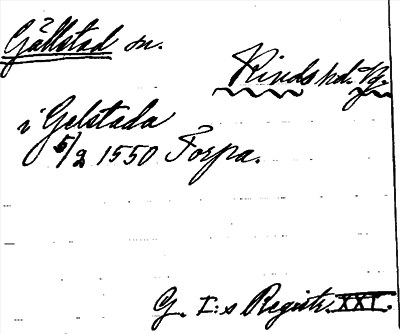 Gällstad sn.
Kinds hd. Vg.
i Gelstada
5/2 1550 Torpa.
G. I:s Registr. XXI.